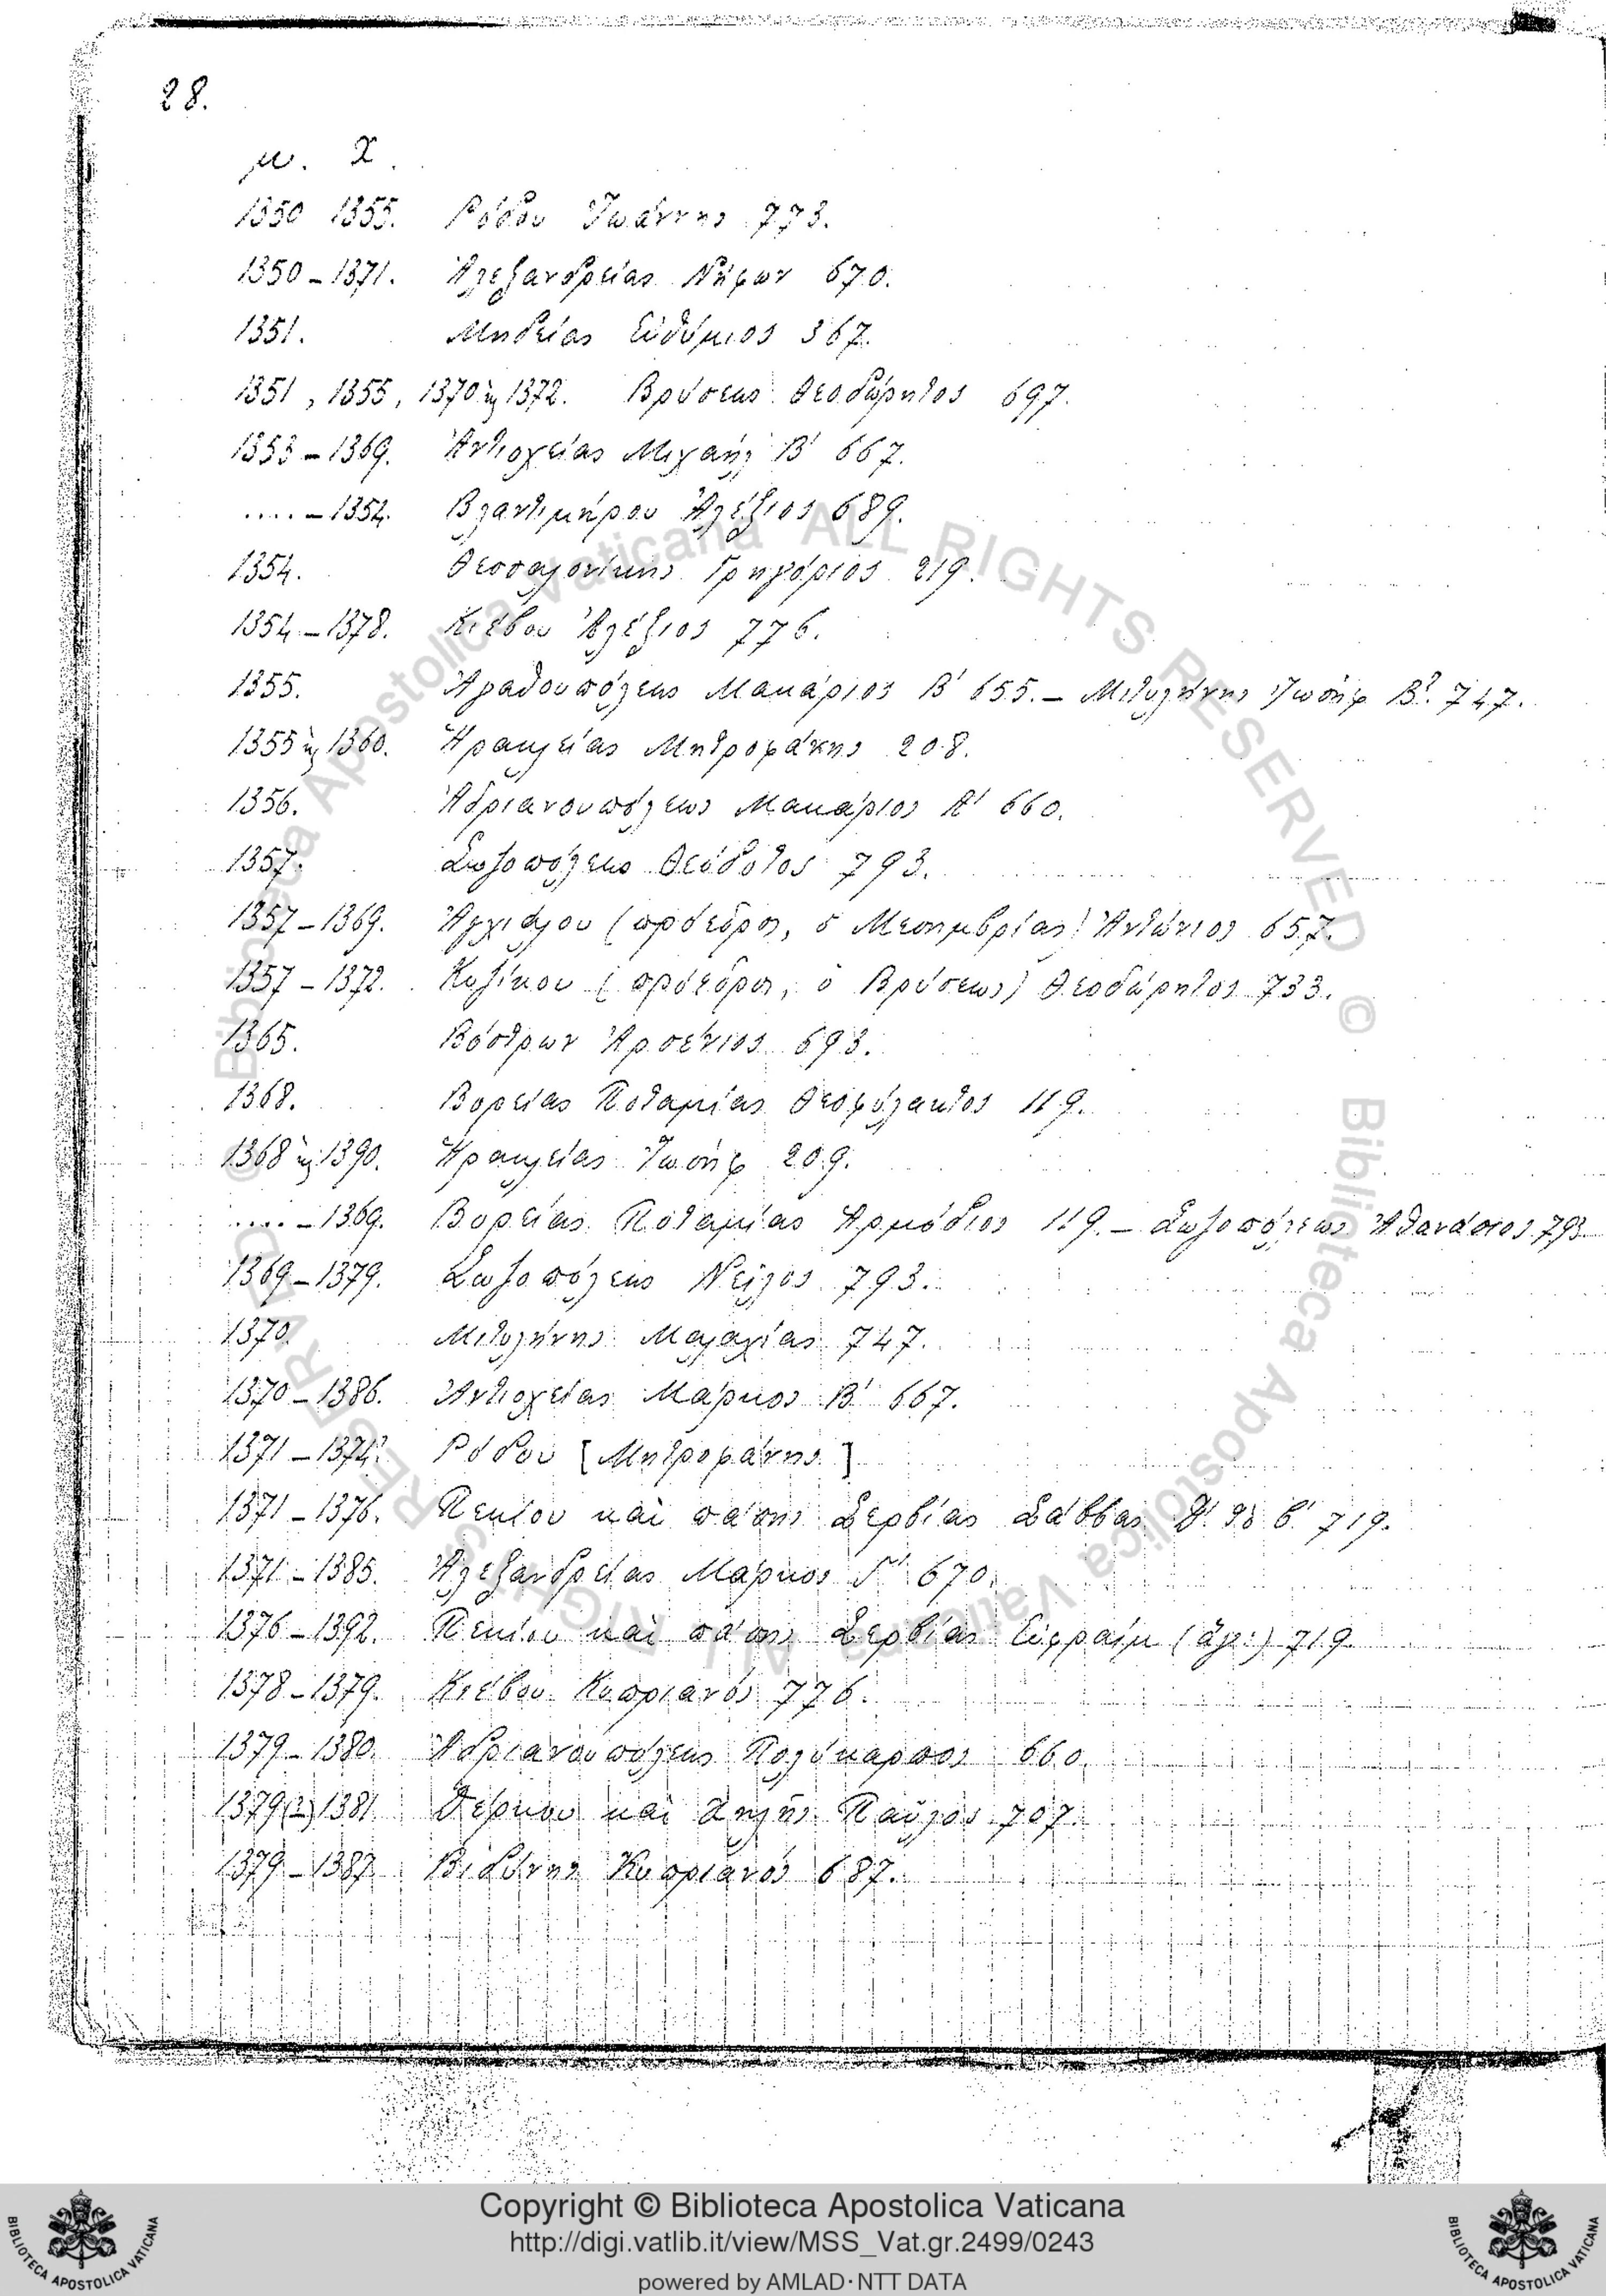 28.
μ. Χ.
1350 1355. Ῥόδου Ἰωάννης 773.
1350 – 1371. Ἀλεξανδρείας Νήφων 670.
1351. Μηδείας Εὐθύμιος 367.
1351, 1355, 1370 ϗ 1372. Βρύσεως Θεοδώρητος 697.
1353 – 1369. Ἀντιοχείας Μιχαήλ Β' 667.
.... – 1354. Βλαντιμήρου Ἀλέξιος 689.
1354. Θεσσαλονίκης Γρηγόριος 219.
1354 – 1378. Κιέβου Ἀλέξιος 776.
1355. Ἀγαθουπόλεως Μακάριος Β' 655. – Μιτυλήνης Ἰωσήφ Β? 747.
1355 ϗ 1360. Ἡρακλείας Μητροφάνης 208.
1356. Ἀδριανουπόλεως Μακάριος Α' 660.
1357. Σωζοπόλεως Θεόδοτος 793.
1357 – 1369. Ἀγχιάλου (πρόεδρος, ὁ Μεσημβρίας) Ἀντώνιος 657.
1357 – 1372. Κυζίκου (πρόεδρος, ὁ Βρύσεως) Θεοδώρητος 733.
1365. Βόστρων Ἀρσένιος 693.
1368. Βορείας Ποταμίας Θεοφύλακτος 119.
1368 ϗ 1390. Ἡρακλείας Ἰωσήφ 209.
.... – 1369. Βορείας Ποταμίας Ἁρμόδιος 119. – Σωζοπόλεως Ἀθανάσιος 793
1369 – 1379. Σωζοπόλεως Νεῖλος 793.
1370. Μιτυλήνης Μαλαχίας 747.
1370 – 1386. Ἀντιοχείας Μάρκος Β' 667.
1371 – 1374? Ῥόδου [Μητροφάνης]
1371 – 1376. Πεκίου καὶ πάσης Σερβίας Σάββας Δ' 719.
1371 – 1385. Ἀλεξανδρείας Μάρκος Γ' 670.
1376 – 1392. Πεκίου καὶ πάσης Σερβίας Εὐφραίμ (ἅγι:) 719
1378 – 1379. Κιέβου Κυπριανός 776.
1379 – 1380. Ἀδριανουπόλεως Πολύκαρπος 660.
1379 (?) 1381 Δέρκου καὶ Χηλῆς Παῦλος 707.
1379 – 1387 Βιδύνης Κυπριανός 687.
Copyright © Biblioteca Apostolica Vaticana
http://digi.vatlib.it/view/MSS_Vat.gr.2499/0243
powered by AMLAD·NTT DATA
BIBLIOTECA APOSTOLICA VATICANA
BIBLIOTECA APOSTOLICA VATICANA
© Biblioteca Apostolica Vaticana ALL RIGHTS RESERVED © Biblioteca Apostolica Vaticana ALL RIGHTS RESERVED